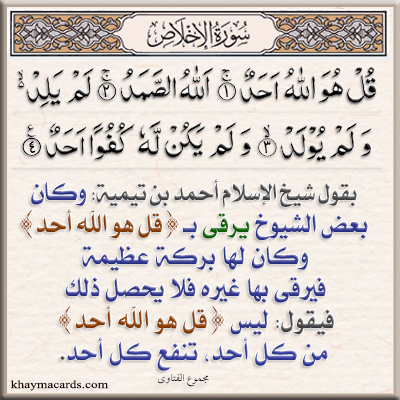 سُورَةُ الإِخْلَاصِ
قُلْ هُوَ اللَّهُ أَحَدٌ ١ اللَّهُ الصَّمَدُ ٢ لَمْ يَلِدْ
وَلَمْ يُولَدْ ٣ وَلَمْ يَكُن لَّهُ كُفُوًا أَحَدٌ ٤
يقول شيخ الإسلام أحمد بن تيمية: وكان
بعض الشيوخ يرقى بـ ﴿قل هو الله أحد﴾
وكان لها بركة عظيمة
فيرقى بها غيره فلا يحصل ذلك
فيقول: ليس ﴿قل هو الله أحد﴾
من كل أحد، تنفع كل أحد.
مجموع الفتاوى
khaymacards.com